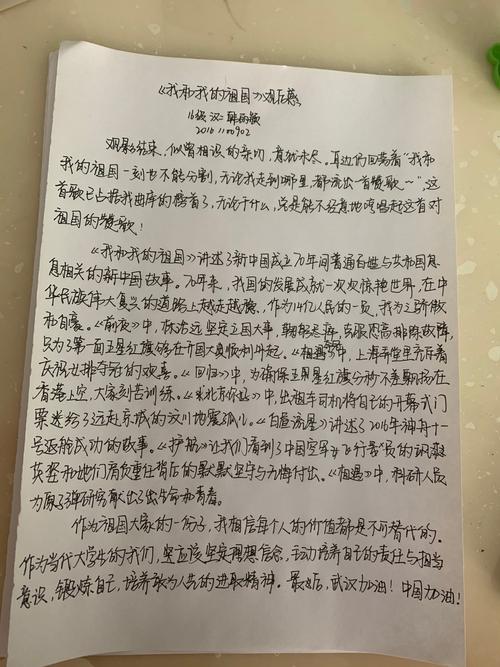 《我和我的祖国》观后感
16级 汉二
2016110902
观影结束，似曾相识的亲切，意犹未尽。耳边仍回荡着“我和
我的祖国一刻也不能分割，无论我走到哪里，都流出一首赞歌~”，这
首歌已占据我曲库的榜首了，无论干什么，总是能不经意地哼唱起这首对
祖国的赞歌！
《我和我的祖国》讲述了新中国成立70年间普通百姓与共和国息
息相关的新中国故事。70年来，我国的发展成就一次次惊艳世界，在中
华民族伟大复兴的道路上越走越稳，作为14亿人民的一员，我为之骄傲
和自豪。《前夜》中，林治远坚定立国大事，克服恐高排除故障，
只为了第一面五星红旗能在开国大典顺利升起。《相遇》中，上海弄堂里充斥着
庆祝女排夺冠的欢喜。《回归》中，为确保五星红旗分秒不差飘扬在
香港上空，大家刻苦训练。《北京你好》中，出租车司机将自己的开幕式门
票送给了远赴京城的汶川地震孤儿。《白昼流星》讲述了2016年神舟十一
号返航成功的故事。《护航》让我们看到了中国空军女飞行员的飒爽
英姿和她们肩负重任背后的默默坚守与无悔付出。《相遇》中，科研人员
为原子弹研究献出了生命和青春。
作为祖国大家的一份子，我相信每个人的价值都是不可替代的。
作为当代大学生的我们，更应该坚定理想信念，主动培养自己的责任与担当
意识，锻炼自己，培养敢为人先的进取精神。最后，武汉加油！中国加油！